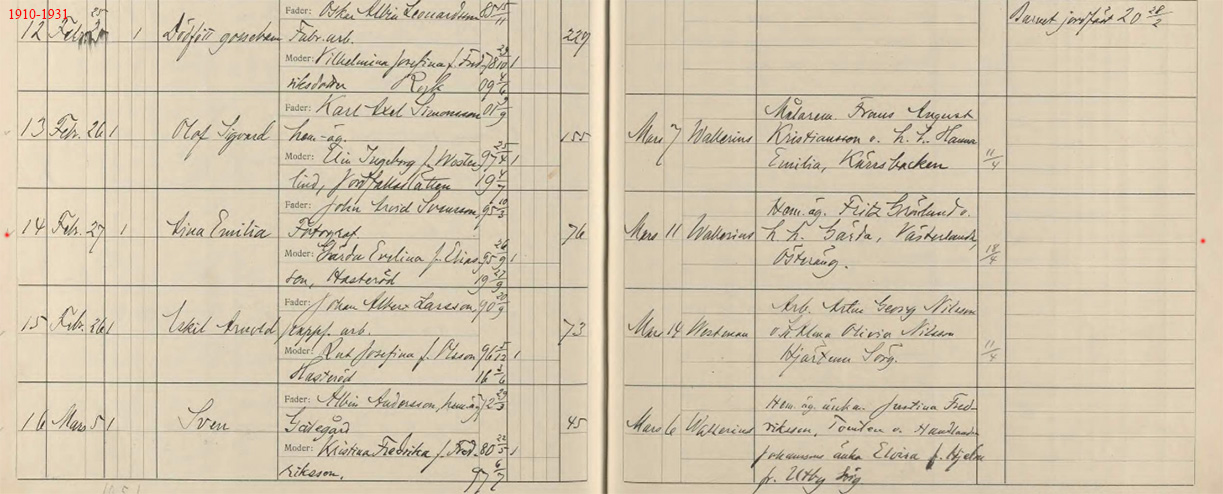 1910-1931
12 Febr. 25 1 Dödfött gossebarn Fader: Oskar Albin Leonardsson 85 15/11
Fabr. arb. 229
Moder: Vilhelmina Josefina f. Fred- 78 29/10 1
riksdotter 09 4/6
Barnet jordfäst 20 28/2
13 Febr. 26 1 Olof Sigvard Fader: Karl Axel Simonsson
hem-äg. 155
Moder: Elin Ingeborg f. Wester- 97 25/4 1
lind, 19 4/7
Mars 7 Wallerius Målarem. Frans August
Kristiansson o. h. h. Hanna
Emilia, Kärrsbacken 11/4
14 Febr. 27 1 Aina Emilia Fader: John Arvid Svensson 95
Fotograf 76
Moder: Gärda Evelina f. Elias- 95 26/9 1
son, Hasteröd 19 27/9
Mars 11 Wallerius Hem. äg. Fritz Grönlund o.
h. h. Gärda, Västerlanda,
Österäng. 18/4
15 Febr. 26 1 Eskil Arnold Fader: Johan Albert Larsson 90 20/9
papp. arb. 73
Moder: Rut Josefina f. Olsson 96 1
Hasteröd 16
Mars 14 Westman Arb. Artur Georg Nilsson
o. Alma Olivia Nilsson
Hjärtum Sörg. 11/4
16 Mars 5 1 Sven Fader: Albin Andersson, hemäg. 72
Godegård 45
Moder: Kristina Fredrika f. Fred- 80 22/5 1
riksson.
Mars 6 Wallerius Hem. äg. änka Justina Fred-
riksson, Tomten o. Handlanden
Johanssons änka Elvira f. Hjelm
fr. Utby Sörg